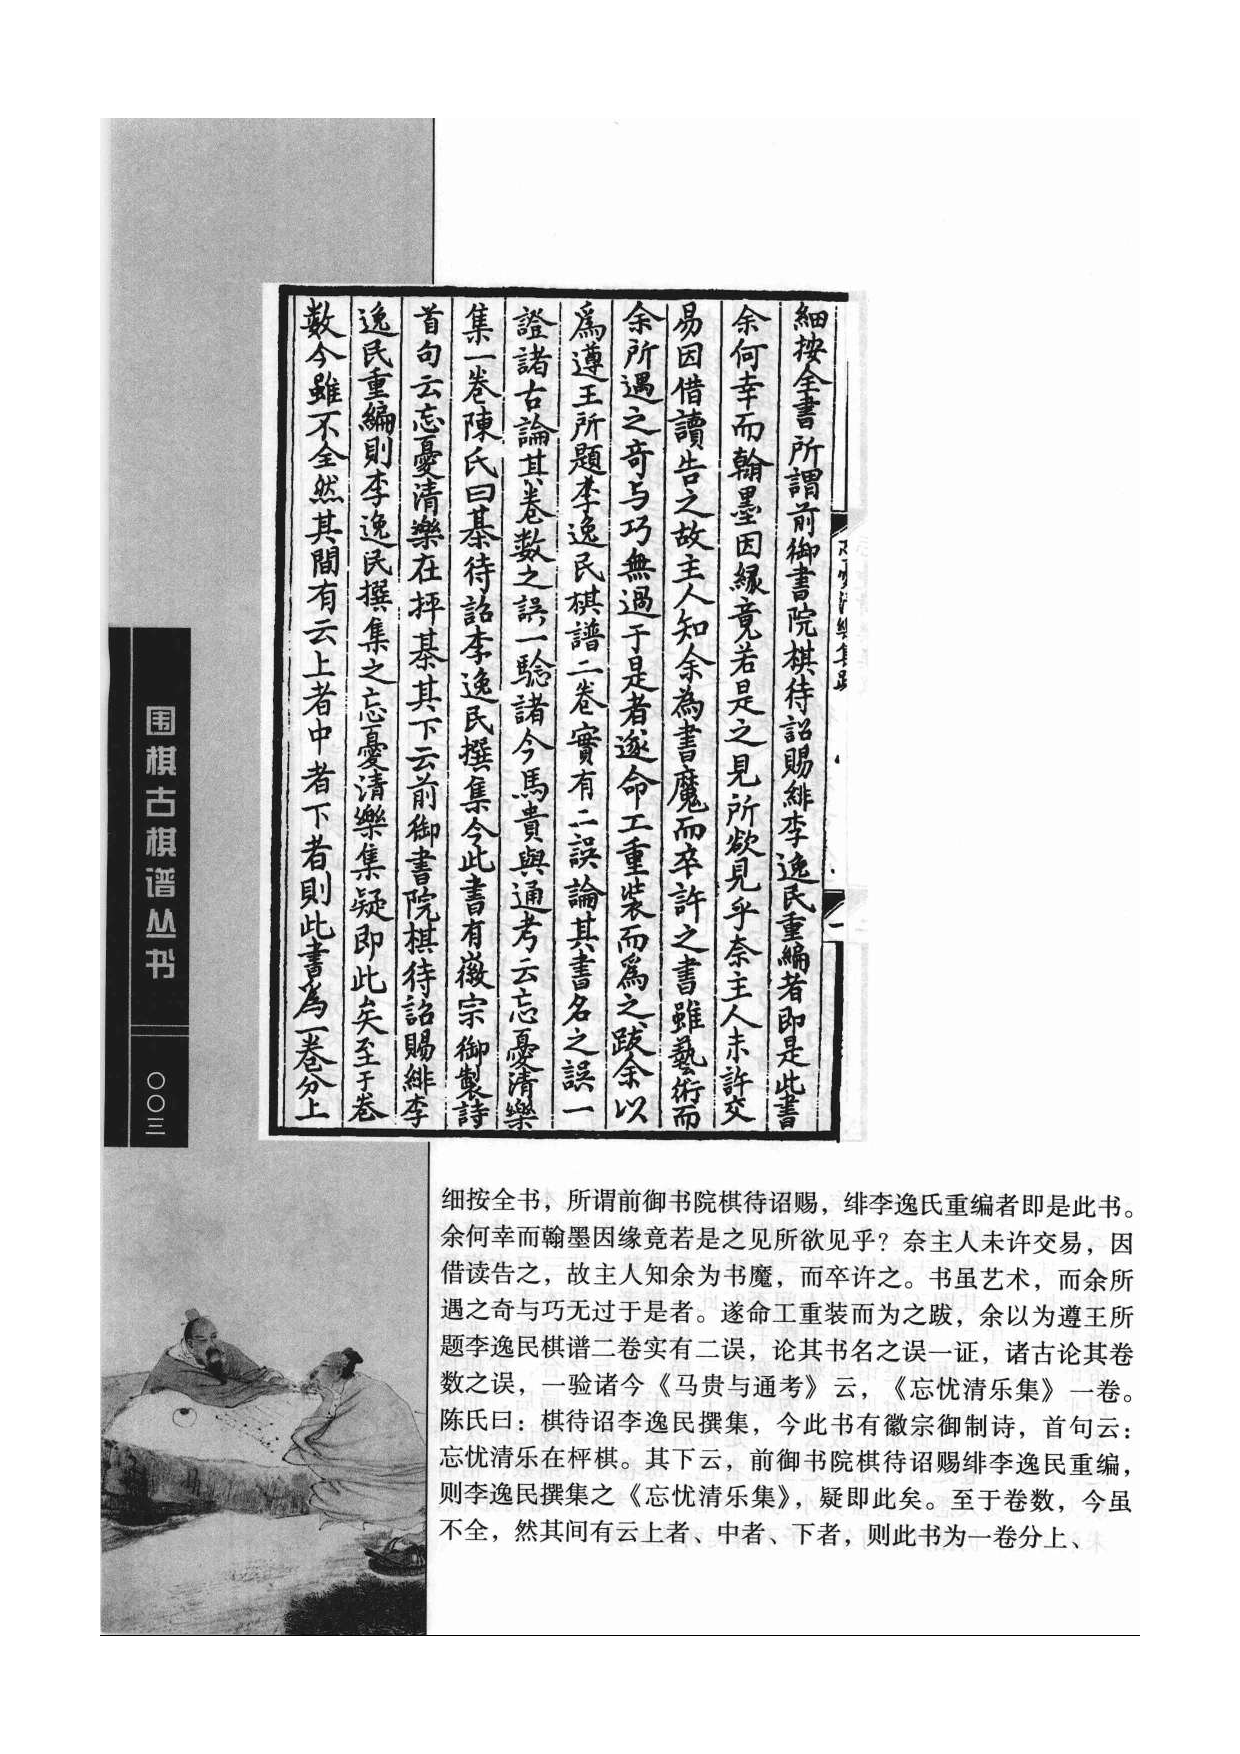 細按全書所謂前御書院棋待詔賜緋李逸民重編者即是此書
余何幸而翰墨因緣竟若是之見所欲見乎奈主人未許交
易因借讀告之故主人知余為書魔而卒許之書雖藝術而
余所遇之奇与巧無過于是者遂命工重装而為之跋余以
為遵王所題李逸民棋譜二卷實有二誤論其書名之誤一
證諸古論其卷數之誤一驗諸今馬貴與通考云忘憂清樂
集一卷陳氏曰棊待詔李逸民撰集今此書有徽宗御製詩
首句云忘憂清樂在枰棊其下云前御書院棋待詔賜緋李
逸民重編則李逸民撰集之忘憂清樂集疑即此矣至于卷
數今雖不全然其間有云上者中者下者則此書為一卷分上
围棋古棋谱丛书
〇〇三
细按全书，所谓前御书院棋待诏赐，绯李逸氏重编者即是此书。
余何幸而翰墨因缘竟若是之见所欲见乎？奈主人未许交易，因
借读告之，故主人知余为书魔，而卒许之。书虽艺术，而余所
遇之奇与巧无过于是者。遂命工重装而为之跋，余以为遵王所
题李逸民棋谱二卷实有二误，论其书名之误一证，诸古论其卷
数之误，一验诸今《马贵与通考》云，《忘忧清乐集》一卷。
陈氏曰：棋待诏李逸民撰集，今此书有徽宗御制诗，首句云：
忘忧清乐在枰棋。其下云，前御书院棋待诏赐绯李逸民重编，
则李逸民撰集之《忘忧清乐集》，疑即此矣。至于卷数，今虽
不全，然其间有云上者、中者、下者，则此书为一卷分上、